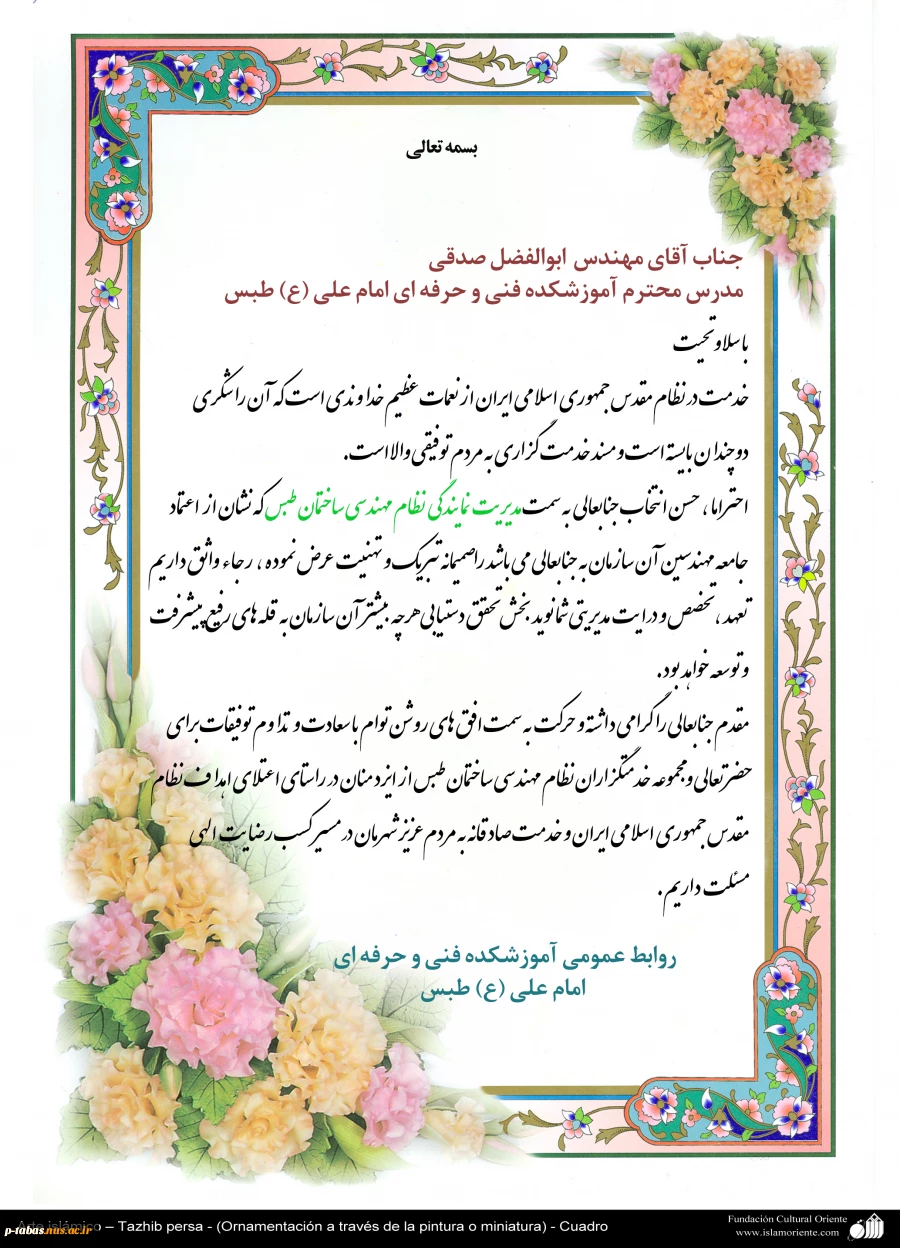 بسمه تعالی
جناب آقای مهندس ابوالفضل صدقی
مدرس محترم آموزشکده فنی و حرفه ای امام علی (ع) طبس
باسلاو تحیت
خدمت در نظام مقدس جمهوری اسلامی ایران از نعمات عظیم خداوندی است که آن را شکری
دوچندان بایسته است و مسند خدمت گزاری به مردم توفیقی والا است.
احتراما ، حسن انتخاب جنابعالی به سمت مدیریت نمایندگی نظام مهندسی ساختمان طبس که نشان از اعتماد
جامعه مهندسین آن سازمان به جنابعالی می باشد را صمیمانه تبریک و تهنیت عرض نموده ، رجاء واثق داریم
تعهد ، تخصص و درایت مدیریتی شما نوید بخش تحقق دستیابی هرچه بیشتر آن سازمان به قله های رفیع پیشرفت
و توسعه خواهد بود.
مقدم جنابعالی را گرامی داشته و حرکت به سمت افق های روشن توام با سعادت و تداوم توفیقات برای
حضرتعالی و مجموعه خدمتگزاران نظام مهندسی ساختمان طبس از ایزد منان در راستای اعتلای اهداف نظام
مقدس جمهوری اسلامی ایران و خدمت صادقانه به مردم عزیز شهرمان در مسیر کسب رضایت الهی
مسئلت داریم.
روابط عمومی آموزشکده فنی و حرفه ای
امام علی (ع) طبس
Arte islámico – Tazhib persa - (Ornamentación a través de la pintura o miniatura) - Cuadro
p-tabas.nus.ac.ir
Fundación Cultural Oriente
www.islamoriente.com